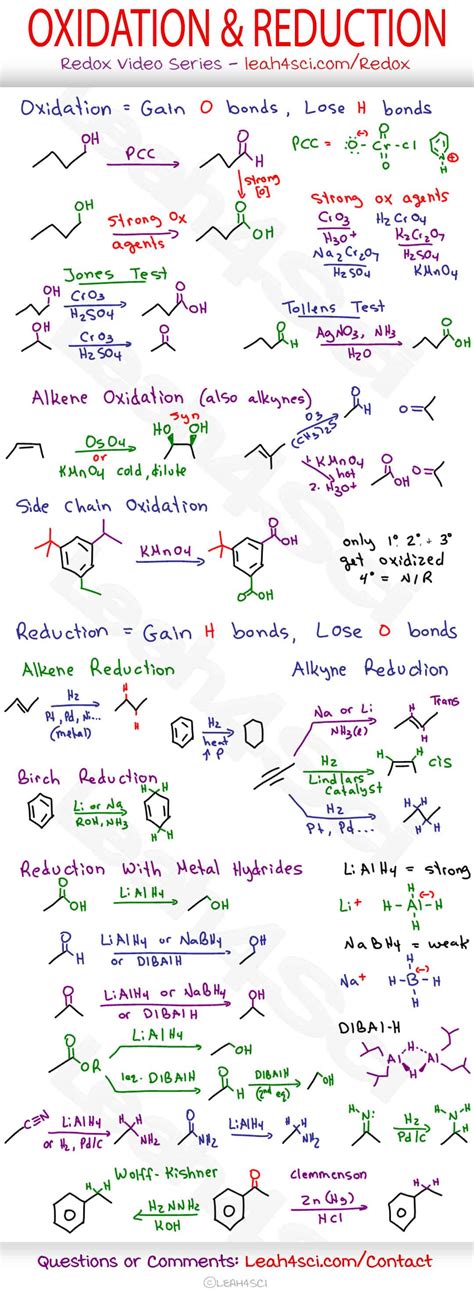 OXIDATION & REDUCTION
Redox Video Series - leah4sci.com/Redox
Oxidation = Gain O bonds, Lose H bonds
OH
PCC
O
H
PCC = O (-) Cr Cl
O
O
N
H
+
Strong
[O]
OH
Strong Ox
agents
O
OH
Strong ox agents
CrO3
H3O+
H2CrO4
Na2Cr2O7
H2SO4
K2Cr2O7
H2SO4
KMnO4
Jones Test
OH
CrO3
H2SO4
O
OH
OH
CrO3
H2SO4
O
Tollens Test
O
H
AgNO3, NH3
H2O
O
OH
Alkene Oxidation (also alkynes)
OsO4
or
KMnO4 cold, dilute
Syn
HO OH
O3
(CH3)2S
O
H
O
KMnO4
hot
2. H3O+
O
OH
O
Side Chain Oxidation
KMnO4
O
OH
O
OH
only 1° 2° + 3°
get oxidized
4° = N/R
Reduction = Gain H bonds, Lose O bonds
Alkene Reduction
H2
Pt, Pd, Ni...
(metal)
H
H
H2
heat
↑ P
Alkyne Reduction
Na or Li
NH3(l)
H
H
Trans
H2
Lindlars
Catalyst
H H
cis
H2
Pt, Pd...
H H
H H
Birch Reduction
Li or Na
ROH, NH3
H H
H H
Reduction With Metal Hydrides
O
OH
LiAlH4
OH
LiAlH4 = strong
Li+
H
H-Al-H
(-)
H
O
H
LiAlH4 or NaBH4
or DIBAlH
OH
NaBH4 = weak
Na+
H
H-B-H
(-)
H
O
LiAlH4 or NaBH4
or DIBAlH
OH
DIBAl-H
Al H Al
H
O
OR
LiAlH4
OH
1eq. DIBAlH
O
H
DIBAlH
(2nd eq)
OH
C≡N
LiAlH4
or H2, Pd/C
H H
NH2
O
NH2
LiAlH4
H H
NH2
H N:
H2
Pd/C
H N H
H
Wolff-Kishner
H H
H2NNH2
KOH
O
Clemmenson
Zn(Hg)
HCl
H H
Questions or Comments: Leah4sci.com/Contact
©LEAH4SCI